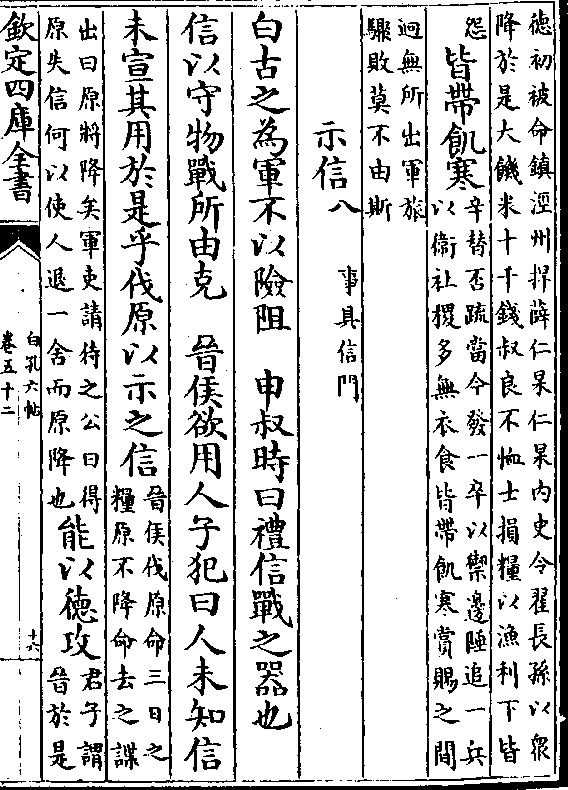 德初被命鎮涇州捍薛仁杲仁杲内史令翟長孫以衆
降於是大饑米十千錢叔良不恤士損糧以漁利下皆
怨
皆帶飢寒
辛替否疏當今發一卒以禦邊陲追一兵
以衛社稷多無衣食皆帶飢寒賞賜之間
迥無所出軍旅
驟敗莫不由斯
示信八
事具信門
白古之為軍不以險阻 申叔時曰禮信戰之器也
信以守物戰所由克 晉侯欲用人子犯曰人未知信
未宣其用於是乎伐原以示之信
晉侯伐原命三日之
糧原不降命去之諜
出曰原將降矣軍吏請待之公曰得
原失信何以使人退一舍而原降也
能以德攻
君子謂
晉於是
欽定四庫全書
白孔六帖
卷五十二
十六